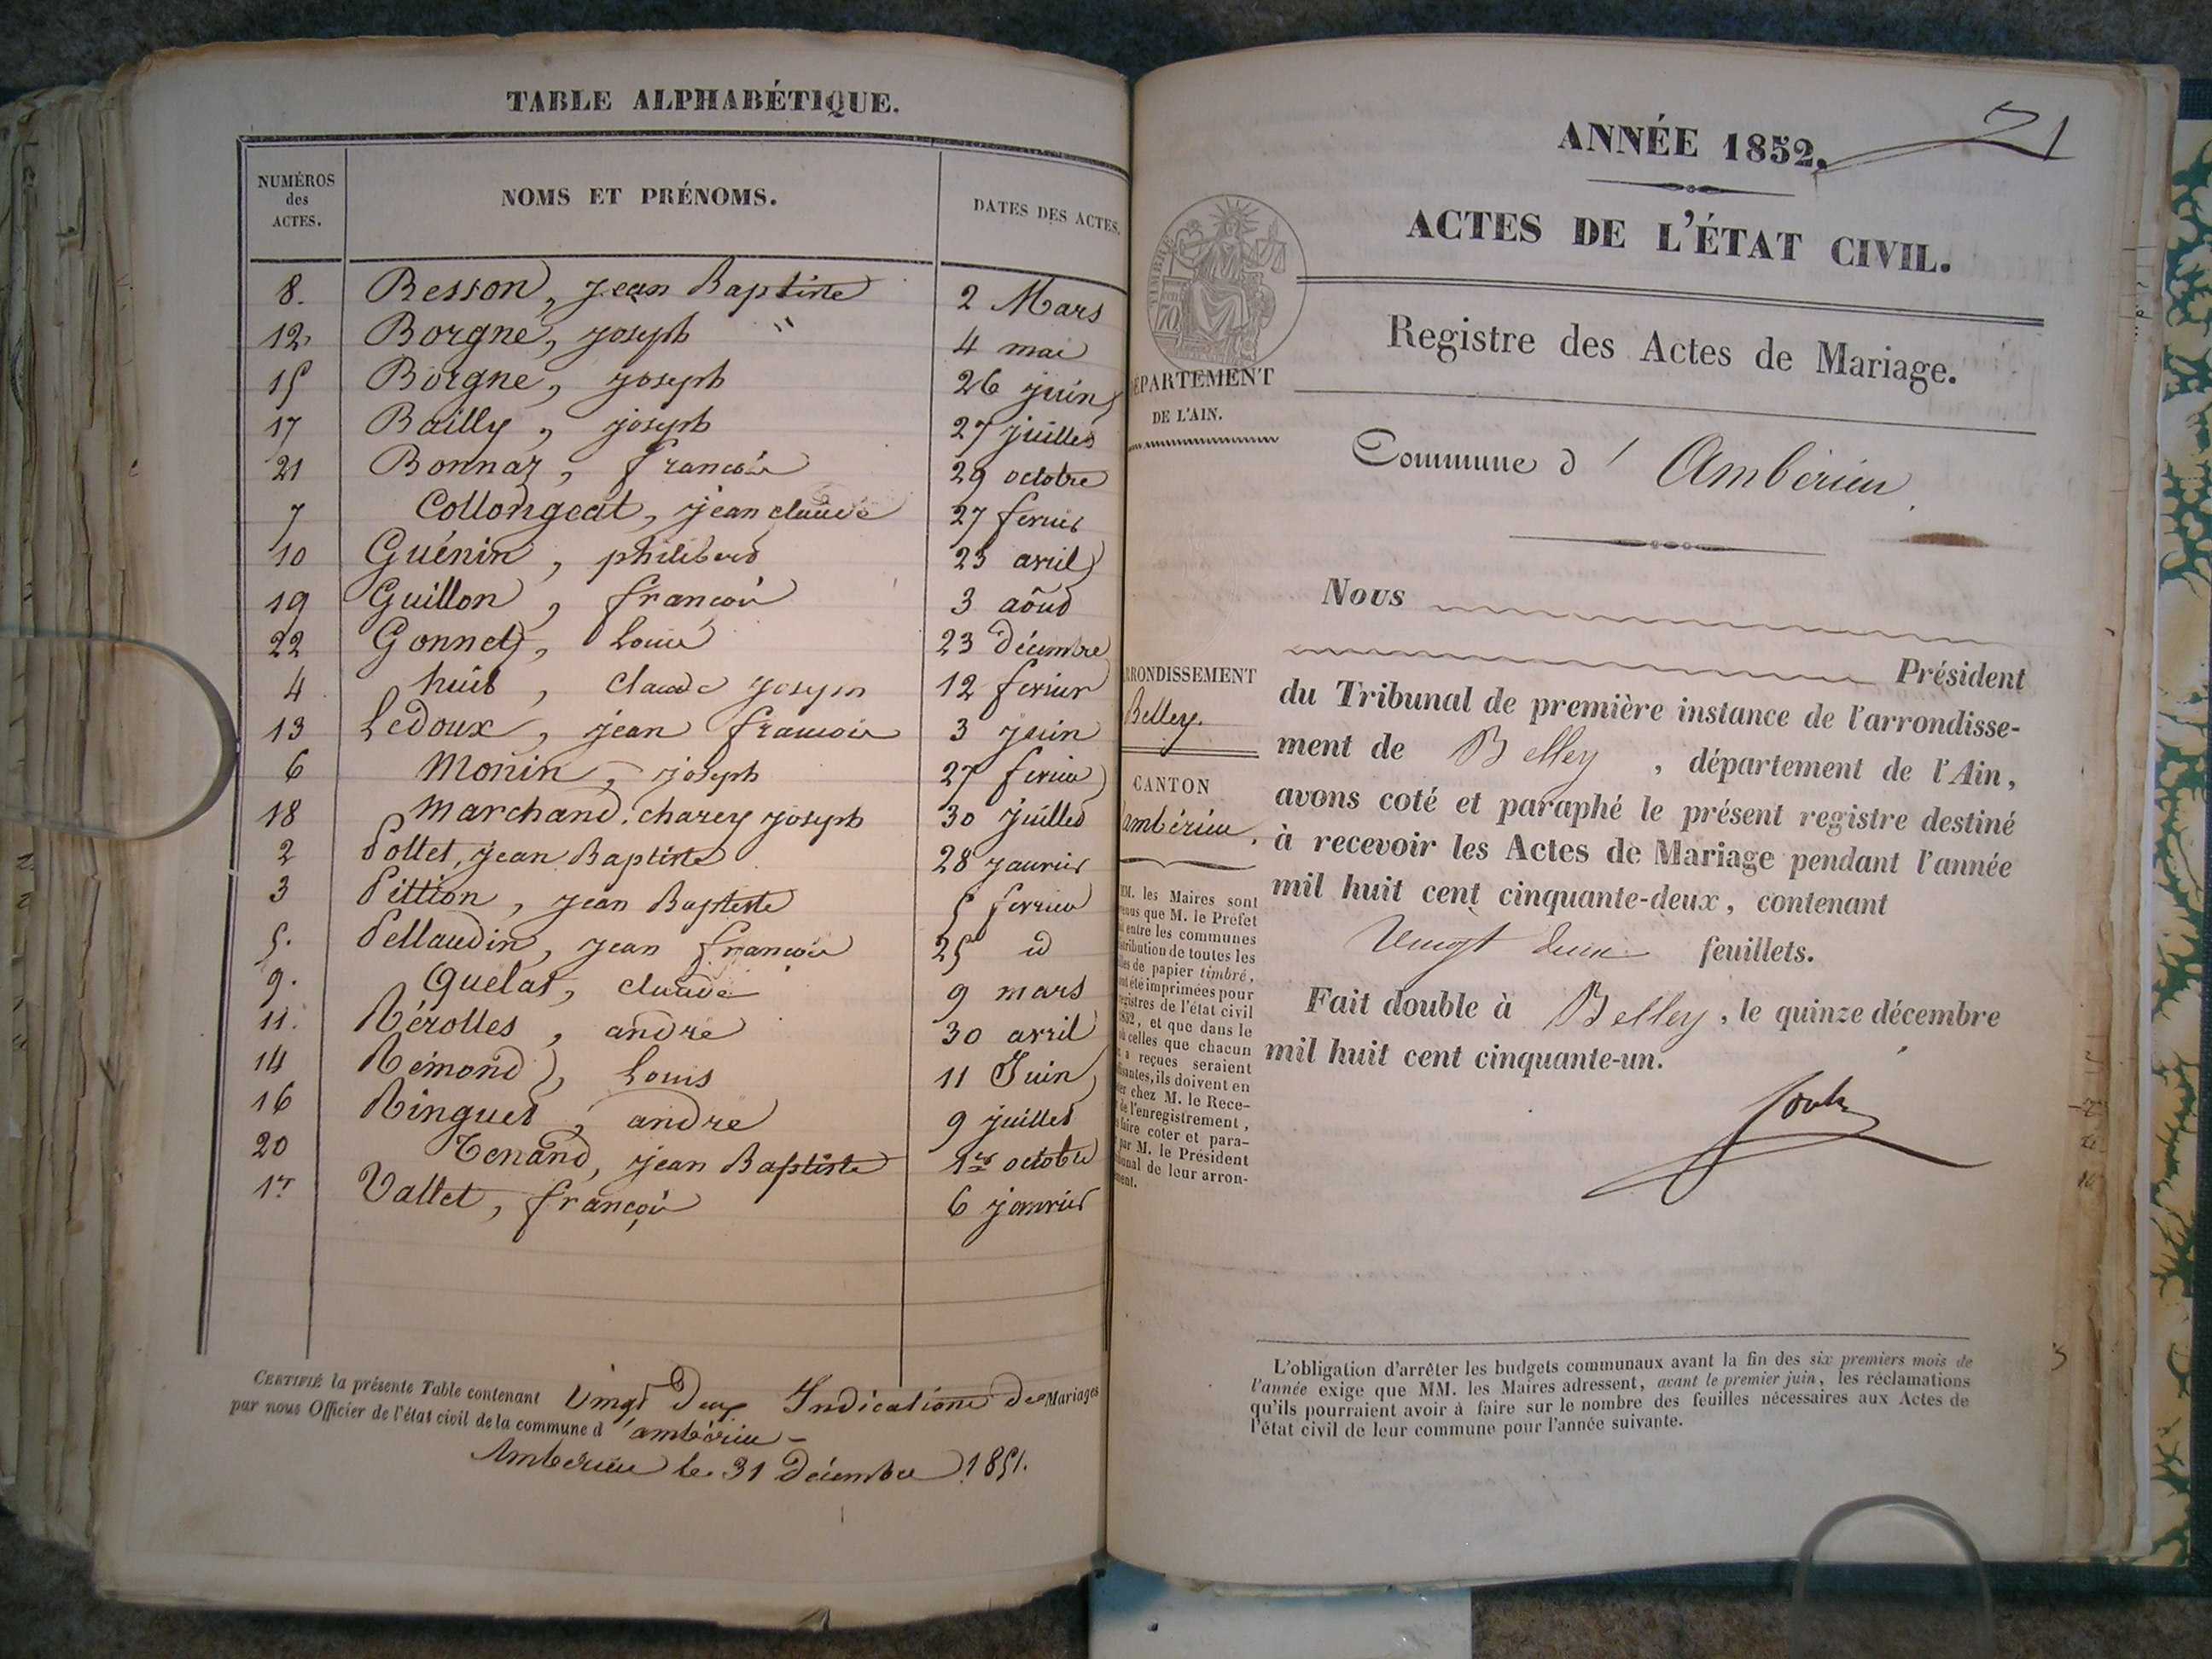 TABLE ALPHABÉTIQUE.
NUMÉROS des ACTES.
NOMS ET PRÉNOMS.
DATES DES ACTES.
8. Besson, jean Baptiste 2 Mars
12, Borgne, joseph " 4 mai
15 Borgne, joseph 26 juin
17 Bailly, joseph 27 juillet
21 Bonnaz, françois 29 octobre
7 Collongeat, jean claude 27 fevrier
10 Guénin, philibert 23 avril
19 Guillon, françois 3 aôut
22 Gonnet, Louis 23 décembre
4 huit, Claude joseph 12 fevrier
13 Ledoux, jean francois 3 juin
6 Monin, joseph 27 fevrier
18 Marchand, charey joseph 30 juillet
2 Pollet, jean Baptiste 28 janvier
3 Pittion, jean Baptiste 5 fevrier
5. Pellaudin, jean françois 25 id
9. Quelat, claude 9 mars
11. Rérolles, andré 30 avril
14 Rémond, Louis 11 Juin
16 Ringuet, andré 9 juillet
20 Tenand, jean Baptiste 1er octobre
1r Vallet, françois 6 janvier
CERTIFIÉ la présente Table contenant Vingt Deux Indications de Mariages
par nous Officier de l'état civil de la commune d'ambérieu
Amberieu le 31 Décembre 1851.
21
ANNÉE 1852.
ACTES DE L'ÉTAT CIVIL.
TIMBRE
70
Registre des Actes de Mariage.
ÉPARTEMENT
DE L'AIN.
Commune d'Ambérieu
Nous
Président
RRONDISSEMENT
Belley.
CANTON
ambérieu.
du Tribunal de première instance de l'arrondisse-
ment de Belley, département de l'Ain,
avons coté et paraphé le présent registre destiné
à recevoir les Actes de Mariage pendant l'année
mil huit cent cinquante-deux, contenant
Vingt deux feuillets.
Fait double à Belley, le quinze décembre
mil huit cent cinquante-un.
MM. les Maires sont
que M. le Préfet
entre les communes
de toutes les
de papier timbré,
été imprimées pour
de l'état civil
et que dans le
celles que chacun
a reçues seraient
ils doivent en
chez M. le Rece-
de l'enregistrement,
faire coter et para-
par M. le Président
de leur arron-
L'obligation d'arrêter les budgets communaux avant la fin des six premiers mois de
l'année exige que MM. les Maires adressent, avant le premier juin, les réclamations
qu'ils pourraient avoir à faire sur le nombre des feuilles nécessaires aux Actes de
l'état civil de leur commune pour l'année suivante.